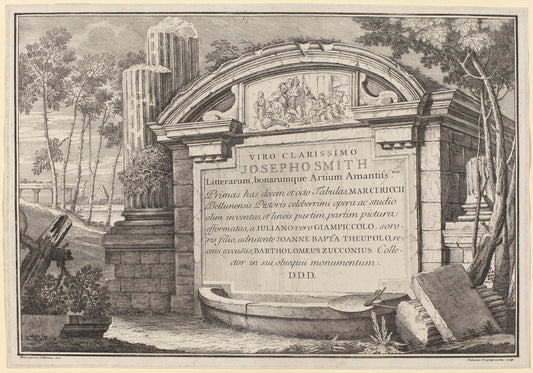 VIRO CLARISSIMO
JOSEPHO SMITH
Litterarum, bonarumque Artium Amantiss.mo
Primas has decem et octo Tabulas, MARCI RICII
Bellunensis Pictoris celeberrimi opera ac studio
olim inventas, et lineis partim, partim pictura
efformatas, a JULIANO vero GIAMPICCOLO, soro-
ris filio, adnitente JOANNE BAPTA THEUPOLO, re-
cens excusas, BARTHOLOMEUS ZUCCONIUS Colle-
ctor in sui obsequii monumentum.
D.D.D.